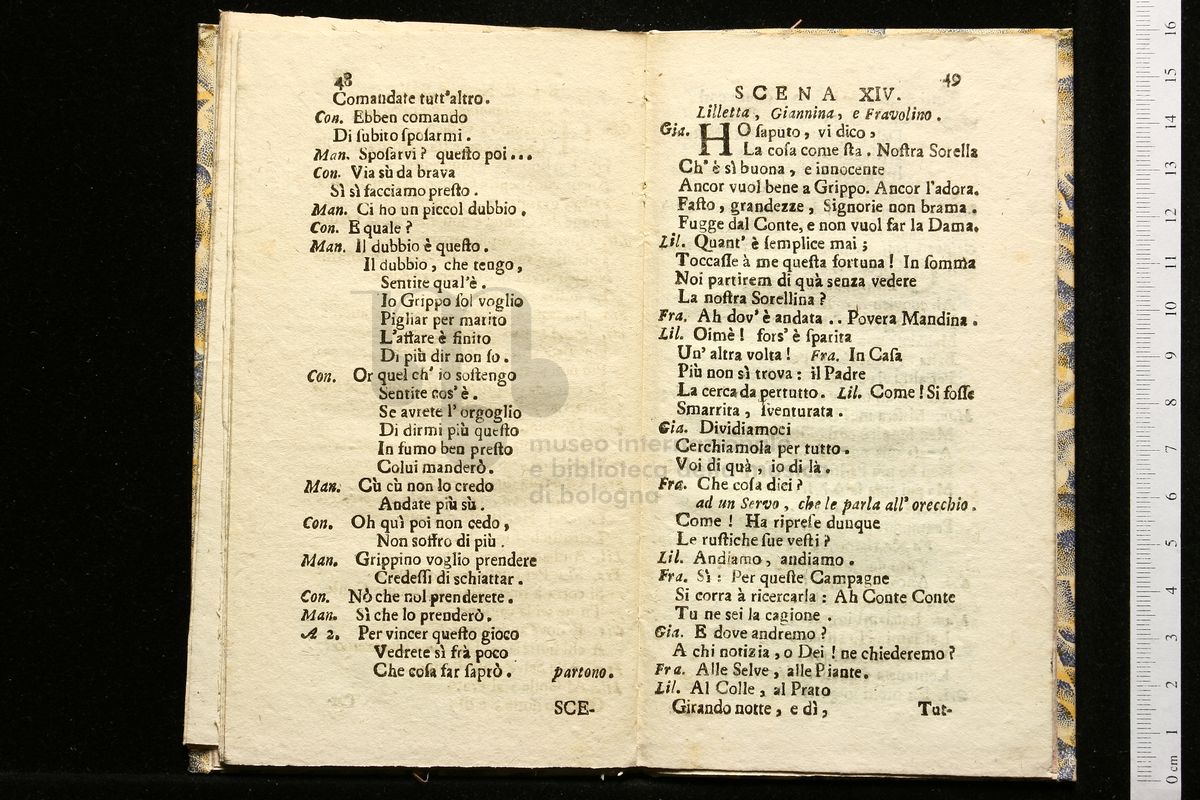 48
Comandate tutt'altro.
Con. Ebben comando
Di ſubito ſpoſarmi.
Man. Spoſarvi? queſto poi...
Con. Via sù da brava
Sì sì facciamo preſto.
Man. Ci ho un piccol dubbio.
Con. E quale?
Man. Il dubbio è queſto.
Il dubbio, che tengo,
Sentite qual'è.
Io Grippo ſol voglio
Pigliar per marito
L'affare è finito
Di più dir non ſo.
Con. Or quel ch' io ſoſtengo
Sentite cos' è.
Se avrete l' orgoglio
Di dirmi più queſto
In fumo ben preſto
Colui manderò.
Man. Cù cù non lo credo
Andate più sù.
Con. Oh quì poi non cedo,
Non soffro di più.
Man. Grippino voglio prendere
Credeſſi di schiattar.
Con. Nò che nol prenderete.
Man. Sì che lo prenderò.
A 2. Per vincer queſto gioco
Vedrete sì frà poco
Che coſa far ſaprò. partono.
SCE-
49
SCENA XIV.
Lilletta, Giannina, e Fravolino.
Gia. HO ſaputo, vi dico,
La coſa come ſta. Noſtra Sorella
Ch' è sì buona, e innocente
Ancor vuol bene a Grippo. Ancor l'adora.
Faſto, grandezze, Signorie non brama.
Fugge dal Conte, e non vuol far la Dama.
Lil. Quant' è ſemplice mai;
Toccaſſe à me queſta fortuna! In ſomma
Noi partirem di quà senza vedere
La noſtra Sorellina?
Fra. Ah dov' è andata .. Povera Mandina.
Lil. Oimè! fors' è ſparita
Un' altra volta! Fra. In Caſa
Più non sì trova: il Padre
La cerca da pertutto. Lil. Come! Si foſſe
Smarrita, ſventurata.
Gia. Dividiamoci
Cerchiamola per tutto.
Voi di quà, io di là.
Fra. Che coſa dici?
ad un Servo, che le parla all' orecchio.
Come! Ha ripreſe dunque
Le ruſtiche ſue veſti?
Lil. Andiamo, andiamo.
Fra. Sì: Per queſte Campagne
Si corra à ricercarla: Ah Conte Conte
Tu ne sei la cagione.
Gia. E dove andremo?
A chi notizia, o Dei! ne chiederemo?
Fra. Alle Selve, alle Piante.
Lil. Al Colle, al Prato
Girando notte, e dì,
Tut-